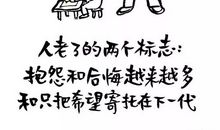 人老了的两个标志：
抱怨和后悔越来越多
和只把希望寄托在下一代